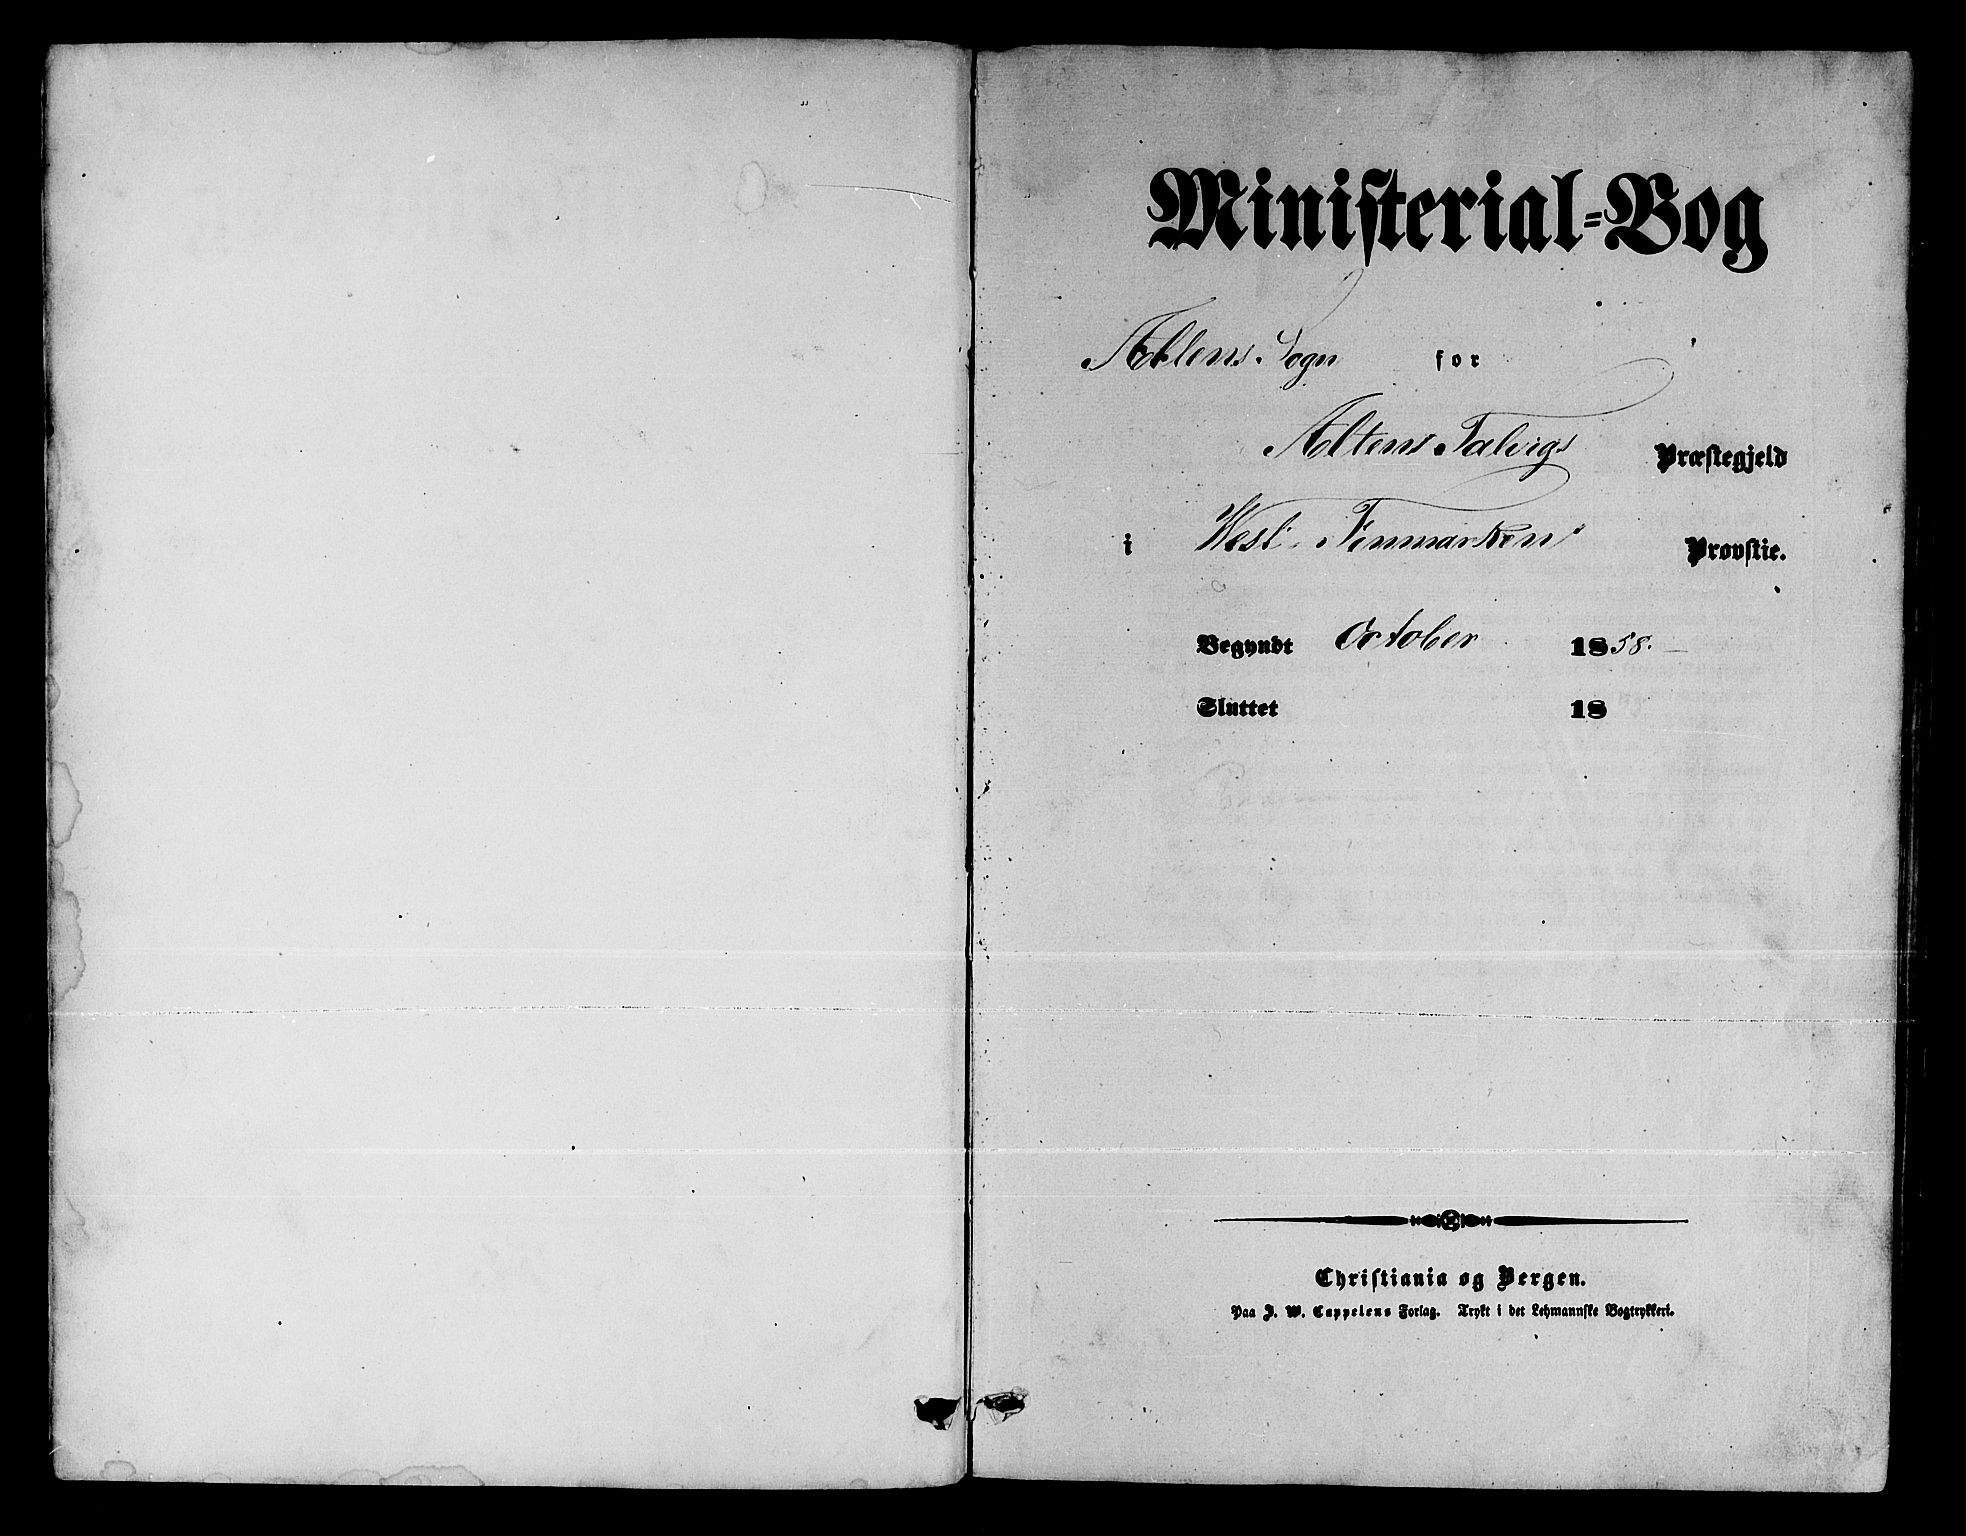 Ministerial-Bog
Altens Sogn for
Altens Talvigs Præstegjeld
i West-Finmarkens Provstie.
Begyndt October 1858.
Sluttet 18
Christiania og Bergen.
Paa J. W. Cappelens Forlag. Trykt i det Lehmannske Bogtrykkeri.